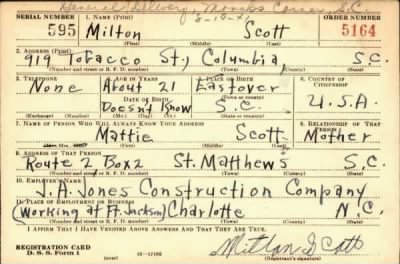 General Delivery, Moncks Corner, S.C.
8-19-41
SERIAL NUMBER 1. NAME (Print) ORDER NUMBER
595 Milton Scott 5164
(First) (Middle) (Last)
2. ADDRESS (Print)
919 Tobacco St., Columbia, S.C.
(Number and street or R. F. D. number) (Town) (County) (State)
3. TELEPHONE 4. AGE IN YEARS 5. PLACE OF BIRTH 6. COUNTRY OF CITIZENSHIP
None About 21 Eastover
DATE OF BIRTH (Town or county)
Doesnt Know S.C. U.S.A.
(Exchange) (Number) (Mo.) (Day) (Yr.) (State or country)
7. NAME OF PERSON WHO WILL ALWAYS KNOW YOUR ADDRESS 8. RELATIONSHIP OF THAT PERSON
Mattie Scott Mother
(First) (Middle) (Last)
9. ADDRESS OF THAT PERSON
Route 2 Box 2 St. Matthews S.C.
(Number and street or R. F. D. number) (Town) (County) (State)
10. EMPLOYER'S NAME
J. A. Jones Construction Company
11. PLACE OF EMPLOYMENT OR BUSINESS
(Working at Ft. Jackson) Charlotte N.C.
(Number and street or R. F. D. number) (Town) (County) (State)
I AFFIRM THAT I HAVE VERIFIED ABOVE ANSWERS AND THAT THEY ARE TRUE.
REGISTRATION CARD
D. S. S. Form 1 (over) 16-17105 (Registrant's signature)